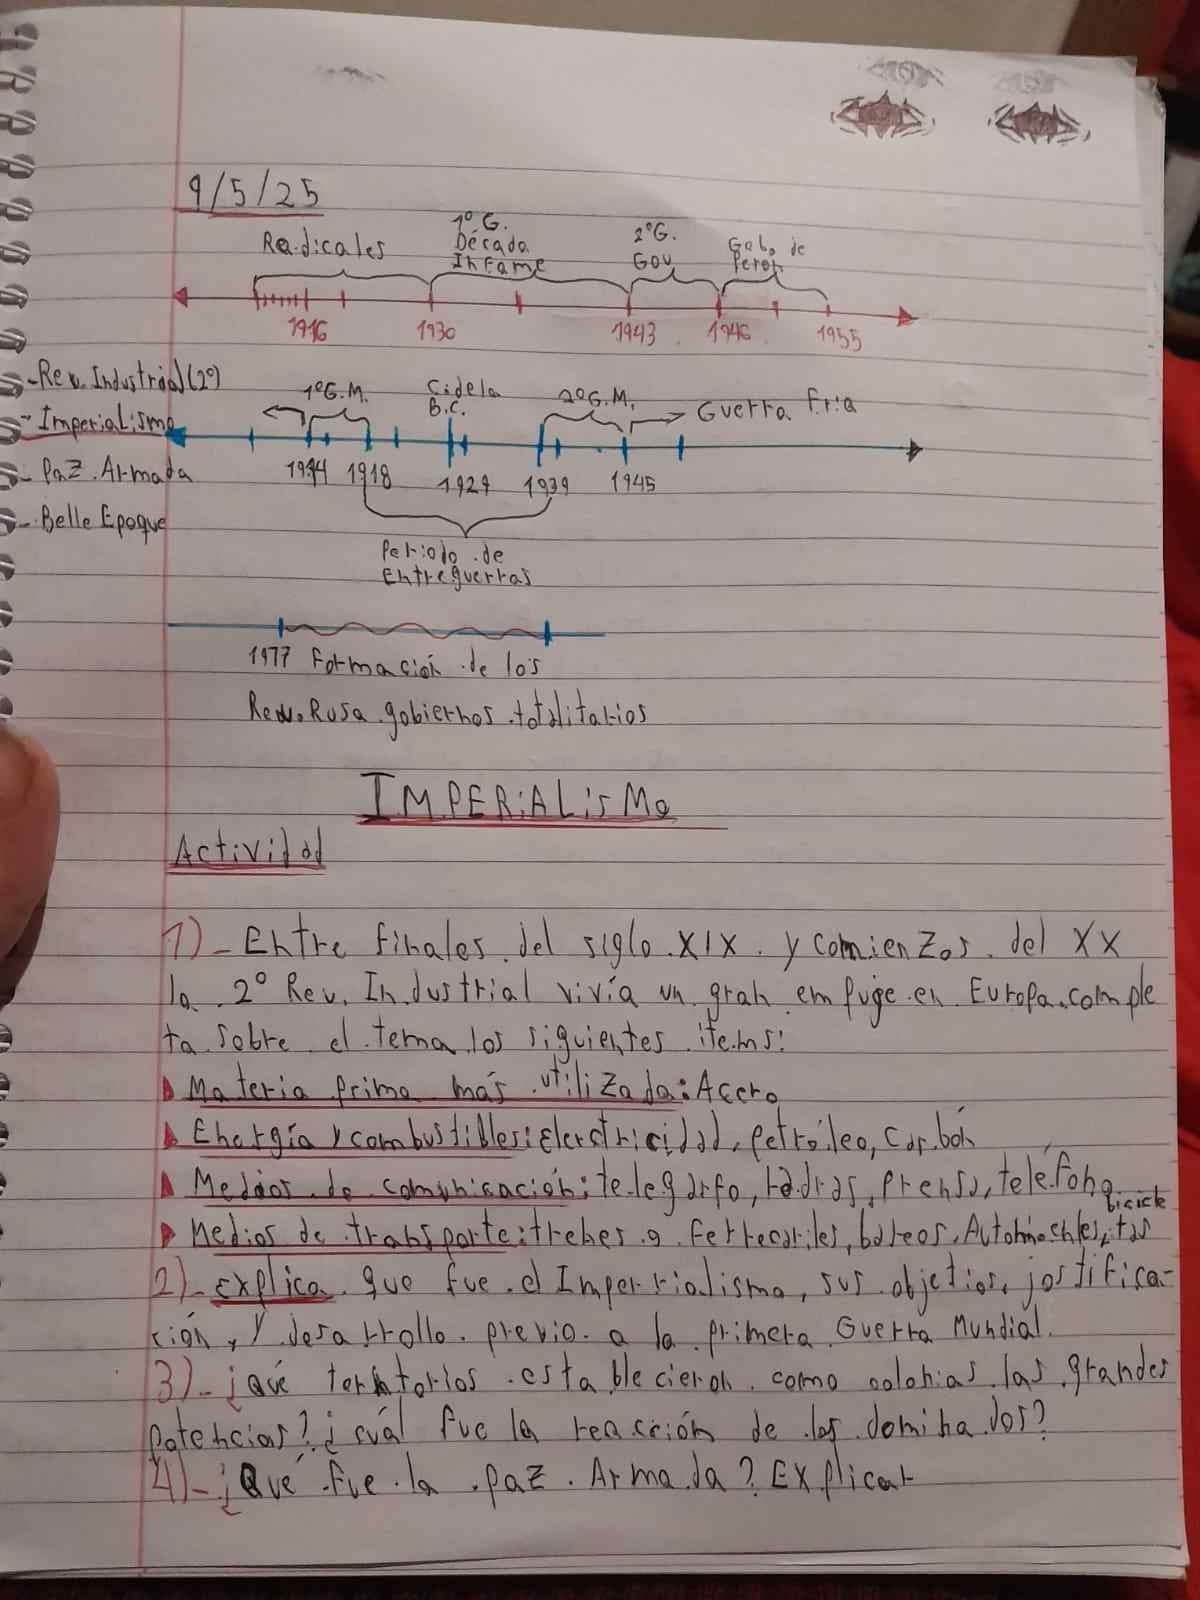 9/5/25
Radicales
1º G.
Década
Infame
2ºG.
Gov
Gob. de
Peron
1916 1930 1943 1946 1955
-Rev. Industrial (2º)
- Imperialismo
- Paz Armada
- Belle Epoque
1ºG.M.
Cidela
B.C.
2ºG.M.
Guerra Fria
1914 1918 1929 1939 1945
Periodo de
Entreguerras
1917 Formación de los
Rev. Rusa gobiernos totalitarios
IMPERiALisMo
Actividad
1)- Entre finales del siglo XIX y comienzos del XX
la 2º Rev. Industrial vivía un gran empuge en Europa. comple
ta sobre el tema los siguientes items:
Materia prima más utilizada: Acero
Energía y combustibles: Electricidad, petróleo, Carbón
Medios de comunicación: telegarfo, radras, prensa, teléfono
Medios de transporte: trenes o Ferrecariles, barcos, Automochles, bicicletas
2)- explica que fue el Imperialismo, sus objetios, jostifica-
ción, y desarrollo previo a la primera Guerra Mundial.
3)- ¿Qué territorios establecieron como colonias las grandes
potencias? ¿cuál fue la reacción de los dominados?
4)- ¿Qué fue la paz Armada? Explicar